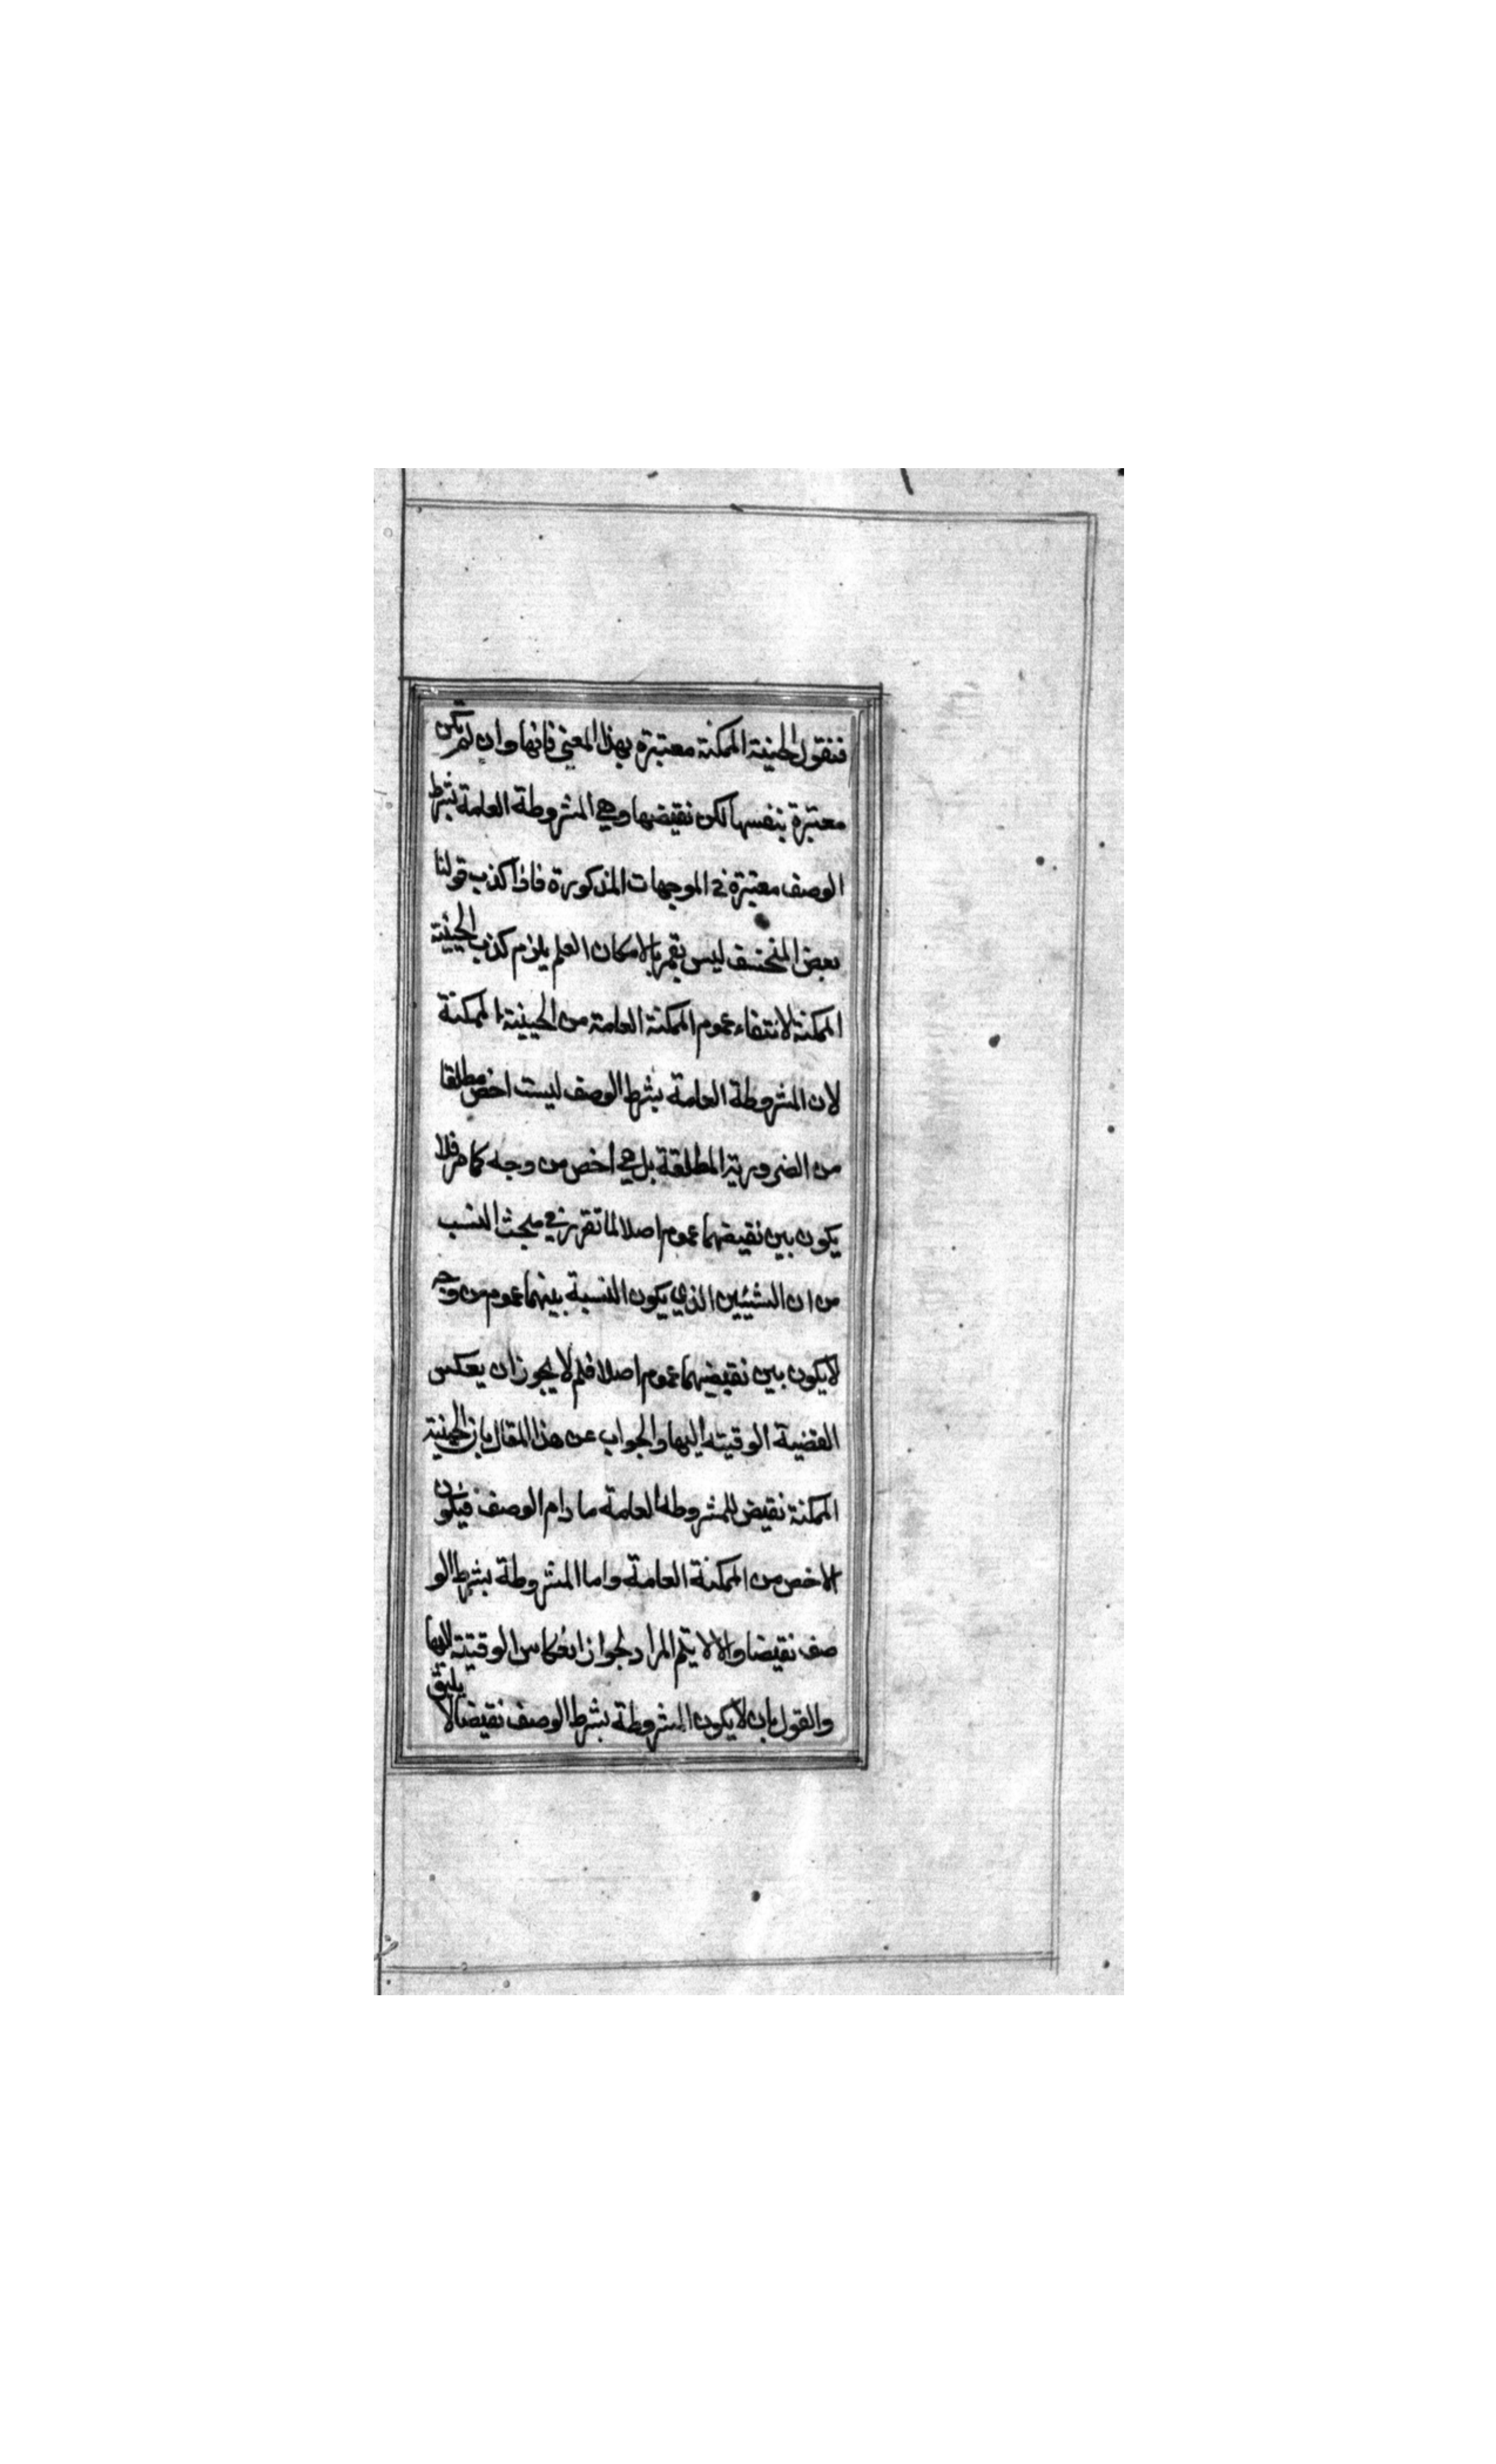 فنقول الحينية الممكنة معتبرة بهذا المعنى فانها وان لم تكن
معتبرة بنفسها لكن نقيضها وهي المشروطة العامة بشرط
الوصف معتبرة في الموجهات المذكورة فاذا كذب قولنا
بعض المنخسف ليس بقمر بالامكان العام يلزم كذب الحينية
الممكنة لانتفاء عموم الممكنة العامة من الحينية الممكنة
لان المشروطة العامة بشرط الوصف ليست اخص مطلقا
من الضرورية المطلقة بل هي اخص من وجه كما مر فلا
يكون بين نقيضهما عموم اصلا لما تقرر في مبحث النسب
من ان الشيئين الذي يكون النسبة بينهما عموم من وجه
لا يكون بين نقيضهما عموم اصلا فلم لا يجوز ان يعكس
القضية الوقيته اليها والجواب عن هذا المقال بان الحينية
الممكنة نقيض للمشروطة العامة ما دام الوصف فيكون
الاخص من الممكنة العامة واما المشروطة بشرط الو
صف نقيضا والا لا يتم المراد لجواز انعكاس الوقتية اليها
والقول بان لا يكون المشروطة بشرط الوصف نقيضا لا يليق